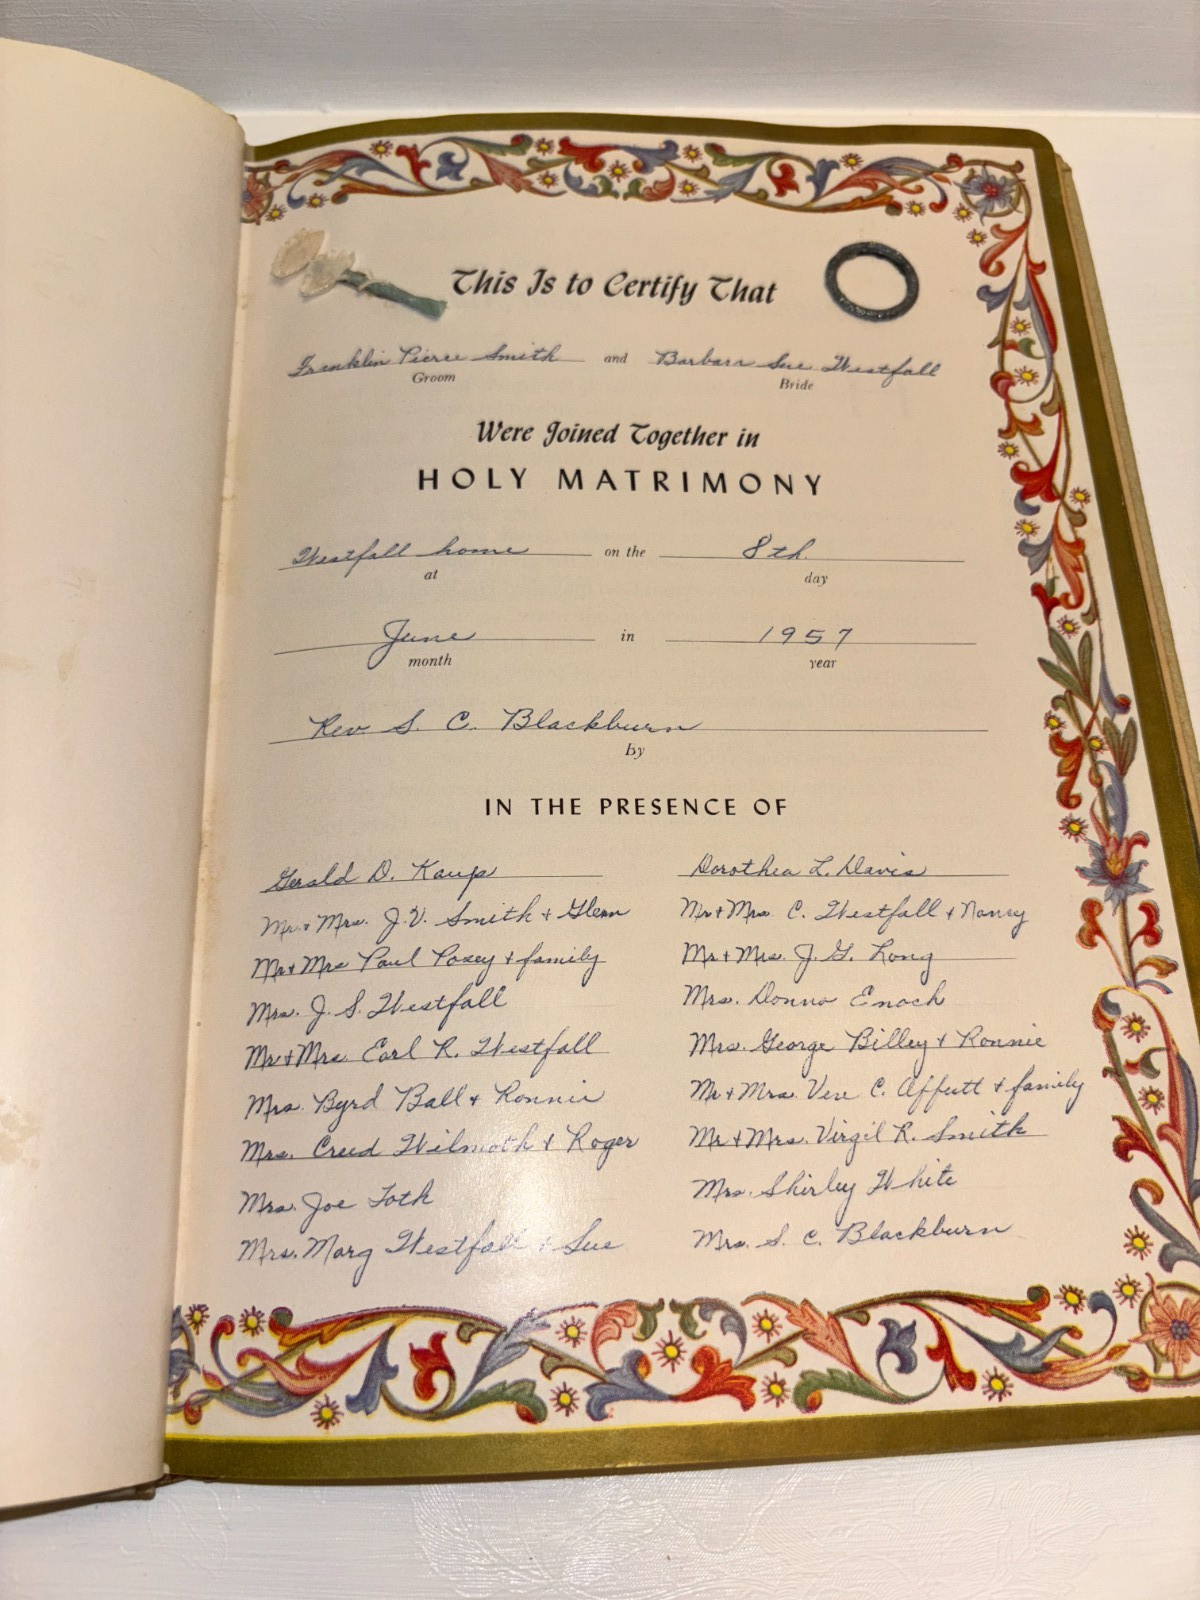 This Is to Certify That
Franklin Pierce Smith and Barbara Sue Westfall
Groom Bride
Were Joined Together in
HOLY MATRIMONY
Westfall home on the 8th
at day
June in 1957
month year
Rev S. C. Blackburn
by
IN THE PRESENCE OF
Gerald D. Kaup Dorothea L. Davis
Mr. + Mrs. J.V. Smith + Glenn Mr + Mrs. C. Westfall + Nancy
Mr + Mrs Paul Posey + family Mr + Mrs. J. G. Long
Mrs. J. S. Westfall Mrs. Donna Enoch
Mr + Mrs. Earl R. Westfall Mrs. George Billey + Ronnie
Mrs. Byrd Ball + Ronnie Mr + Mrs. Vere C. Affutt + family
Mrs. Creed Wilmoth + Roger Mr + Mrs. Virgil R. Smith
Mrs. Joe Toth Mrs. Shirley White
Mrs. Marg Westfall + Sue Mrs. S. C. Blackburn